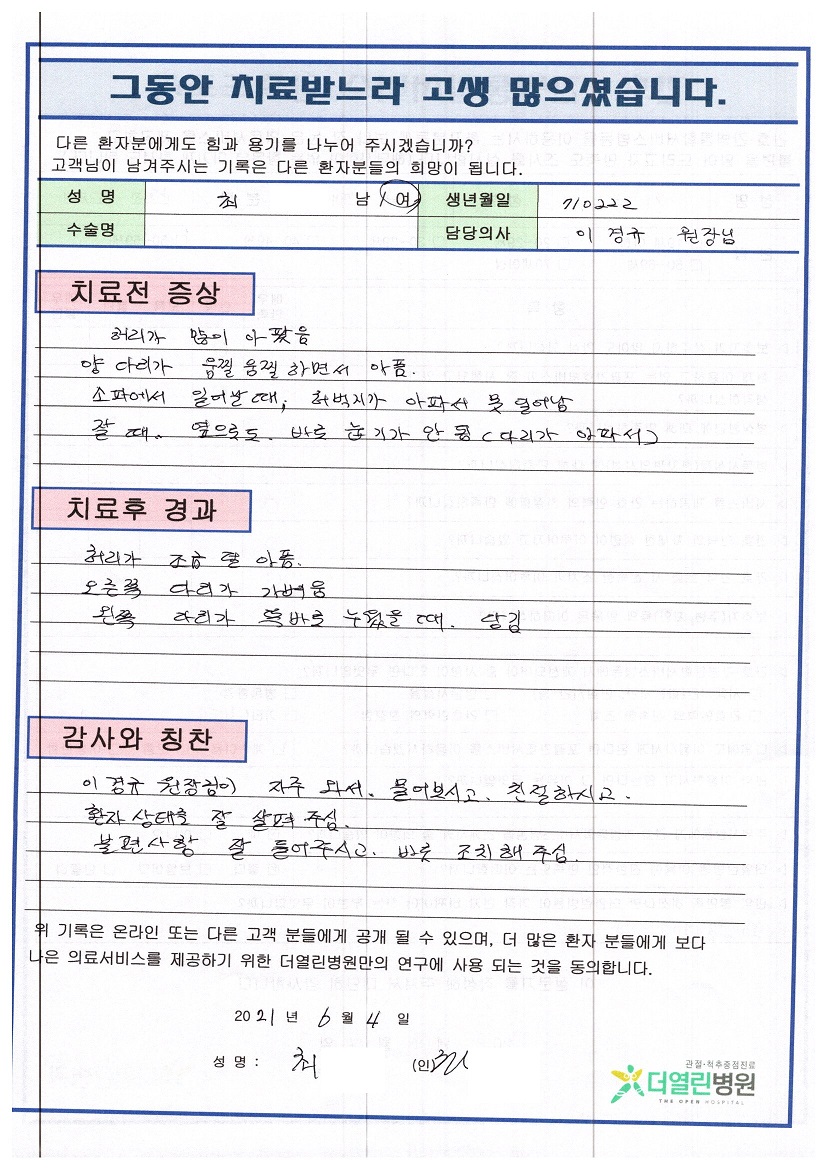 그동안 치료받느라 고생 많으셨습니다.
다른 환자분에게도 힘과 용기를 나누어 주시겠습니까?
고객님이 남겨주시는 기록은 다른 환자분들의 희망이 됩니다.
성 명 최 남 / 여 생년월일 710222
수술명 담당의사 이경규 원장님
치료전 증상
허리가 많이 아팠음
양 다리가 움찔움찔 하면서 아픔.
소파에서 일어날때, 허벅지가 아파서 못 일어남
잘 때. 옆으로도. 바로 눕기가 안 됨 (다리가 아파서)
치료후 경과
허리가 조금 덜 아픔.
오른쪽 다리가 가벼움
왼쪽 다리가 똑바로 누웠을 때. 당김
감사와 칭찬
이경규 원장님이 자주 와서. 물어보시고. 친절하시고.
환자 상태를 잘 살펴 주심.
불편사항 잘 들어주시고. 바로 조치해 주심.
위 기록은 온라인 또는 다른 고객 분들에게 공개 될 수 있으며, 더 많은 환자 분들에게 보다
나은 의료서비스를 제공하기 위한 더열린병원만의 연구에 사용 되는 것을 동의합니다.
2021 년 6 월 4 일
성 명 : 최 (인) 최
관절·척추중점진료
더열린병원
THE OPEN HOSPITAL